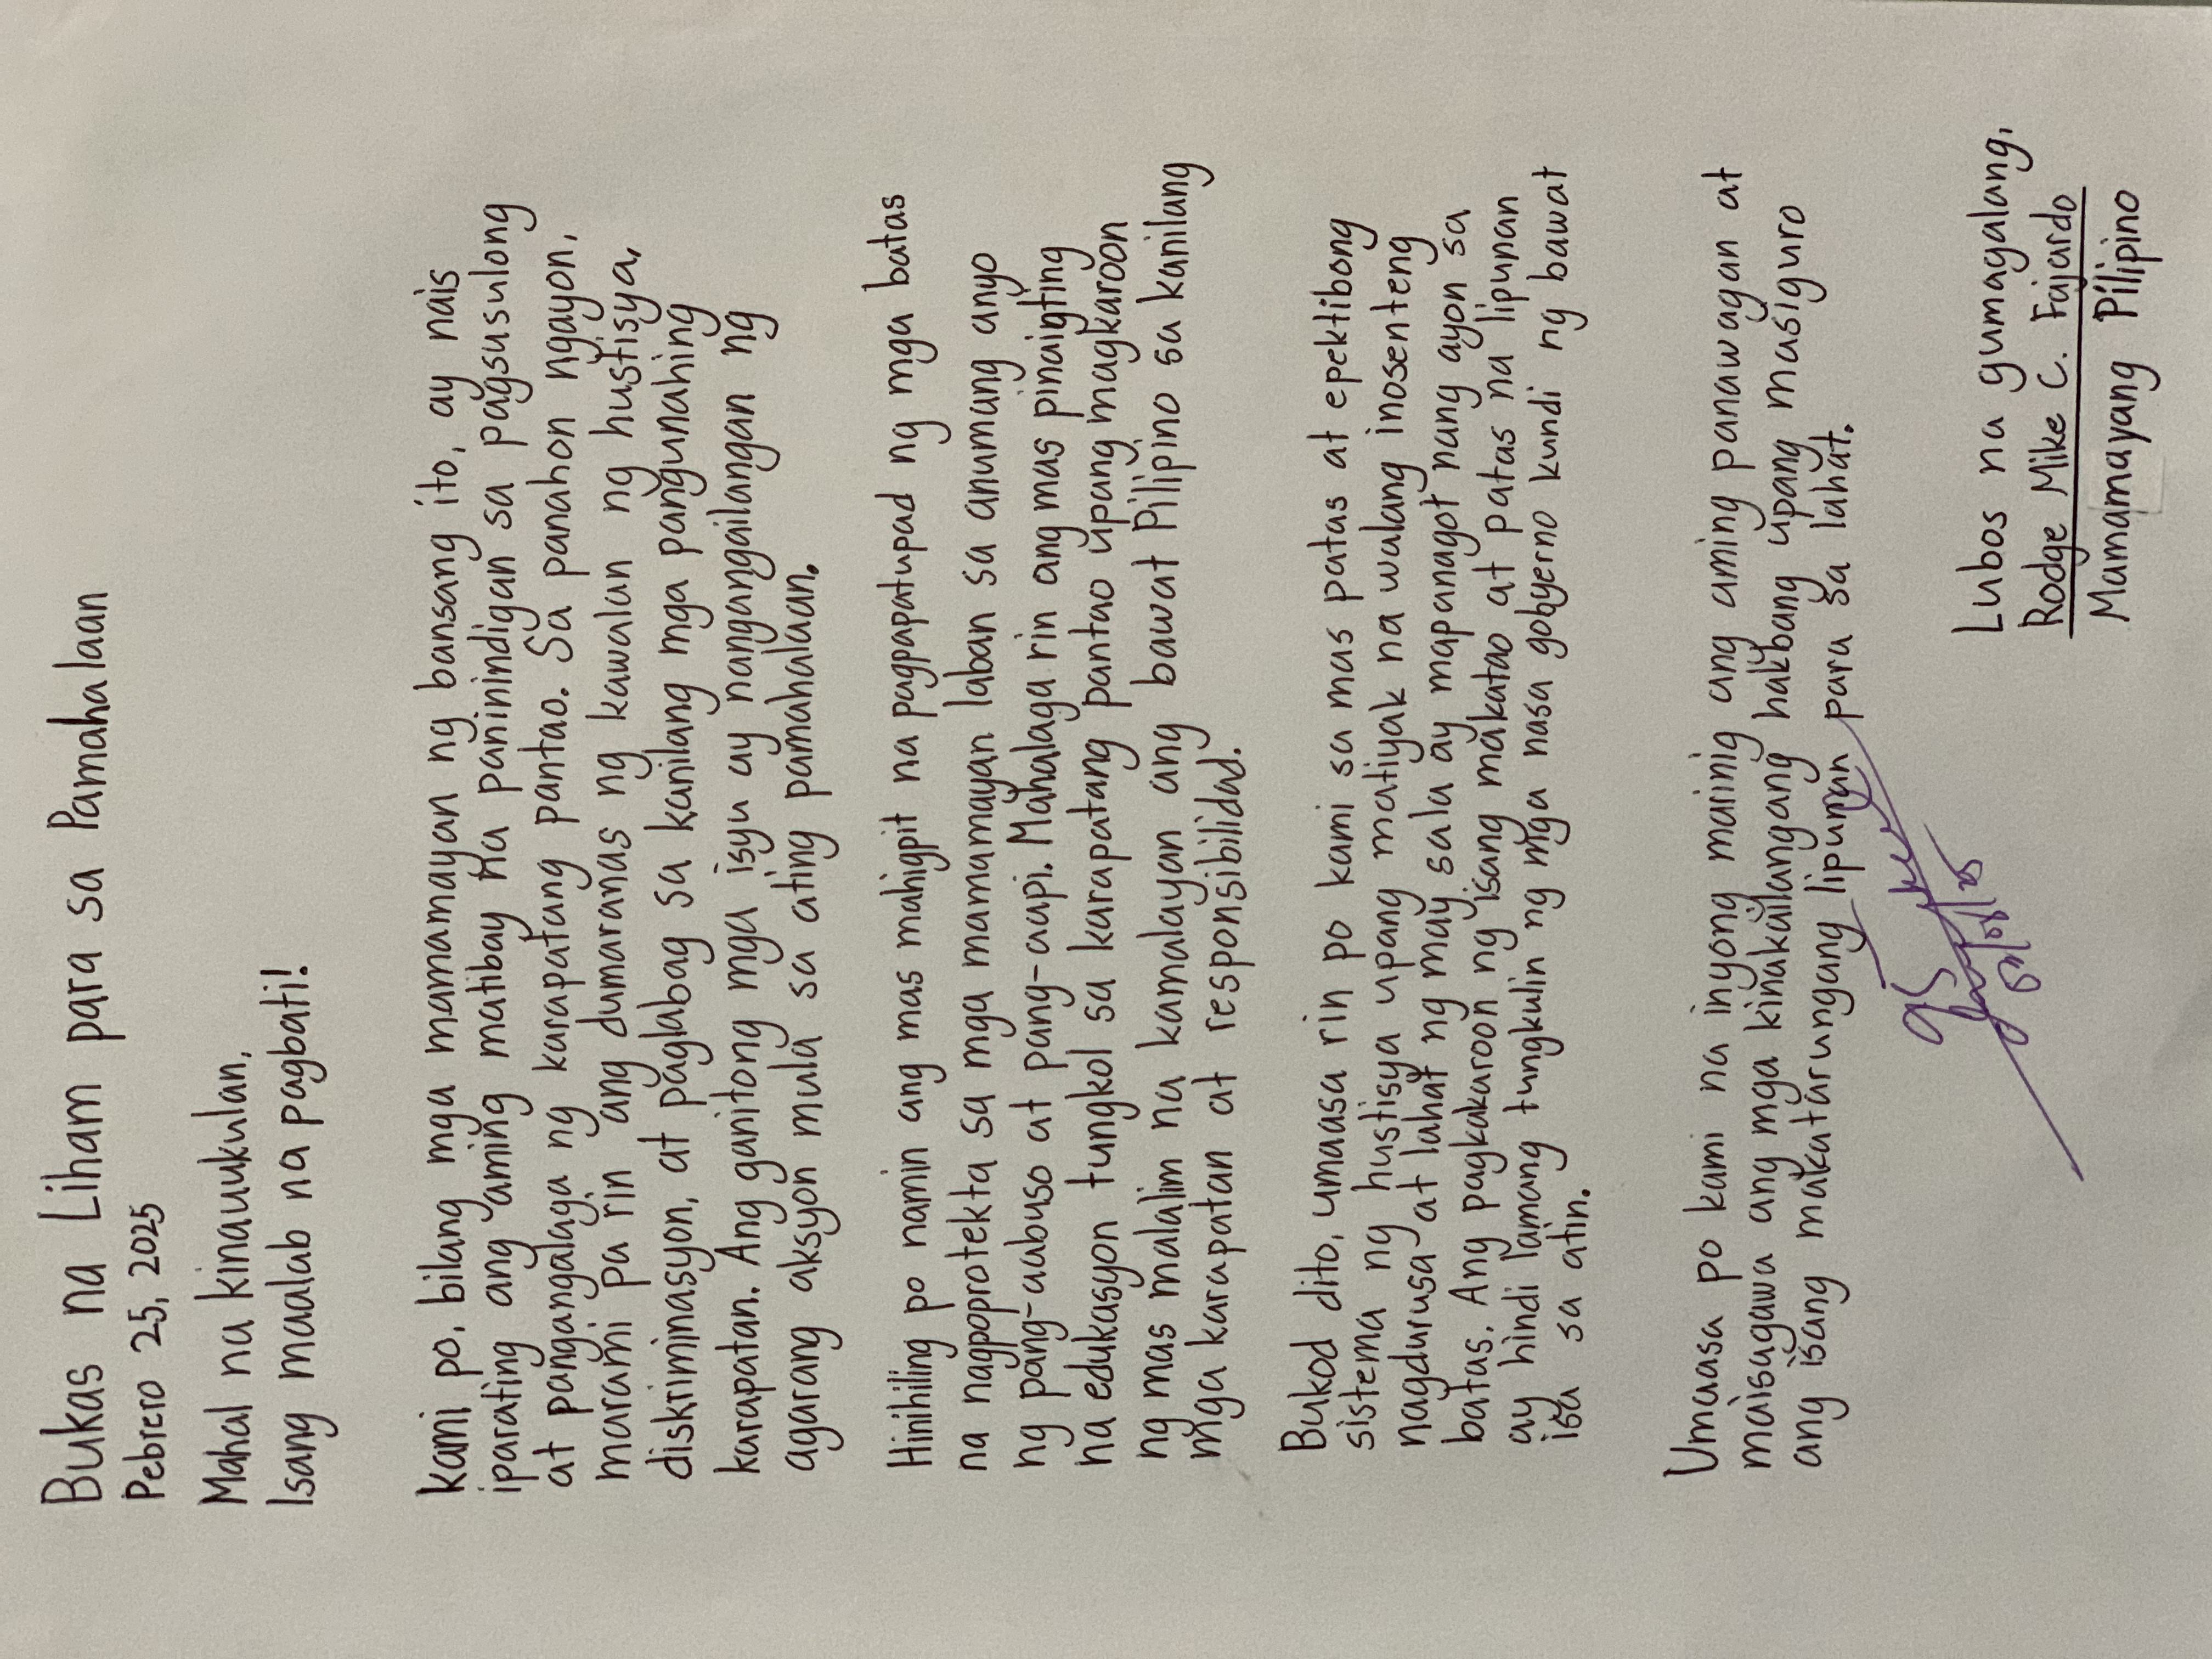 Bukas na Liham para sa Pamahalaan
Pebrero 25, 2025
Mahal na kinauukulan,
Isang maalab na pagbati!
Kami po, bilang mga mamamayan ng bansang ito, ay nais
iparating ang aming matibay na paninindigan sa pagsusulong
at pangangalaga ng karapatang pantao. Sa panahon ngayon,
marami pa rin ang dumaranas ng kawalan ng hustisya,
diskriminasyon, at paglabag sa kanilang mga pangunahing
karapatan. Ang ganitong mga isyu ay nangangailangan ng
agarang aksyon mula sa ating pamahalaan.
Hinihiling po namin ang mas mahigpit na pagpapatupad ng mga batas
na nagpoprotekta sa mga mamamayan laban sa anumang anyo
ng pang-aabuso at pang-aapi. Mahalaga rin ang mas pinaigting
na edukasyon tungkol sa karapatang pantao upang magkaroon
ng mas malalim na kamalayan ang bawat Pilipino sa kanilang
mga karapatan at responsibilidad.
Bukod dito, umaasa rin po kami sa mas patas at epektibong
sistema ng hustisya upang matiyak na walang inosenteng
nagdurusa at lahat ng may sala ay mapanagot nang ayon sa
batas. Ang pagkakaroon ng isang makatao at patas na lipunan
ay hindi lamang tungkulin ng mga nasa gobyerno kundi ng bawat
isa sa atin.
Umaasa po kami na inyong marinig ang aming panawagan at
maisagawa ang mga kinakailangang hakbang upang masiguro
ang isang makatarungang lipunan para sa lahat.
95
03/08/25
Lubos na gumagalang,
Rodge Mike C. Fajardo
Mamamayang Pilipino